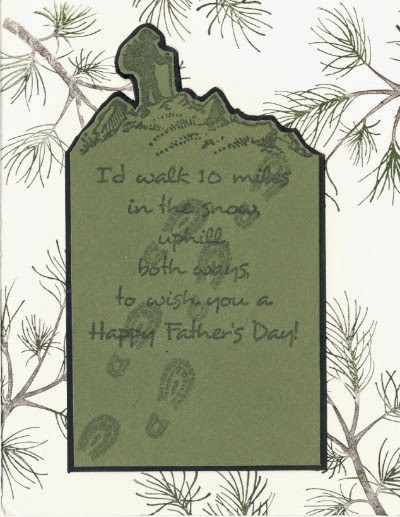 I'd walk 10 miles
in the snow,
uphill,
both ways,
to wish you a
Happy Father's Day!